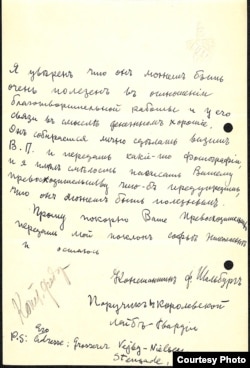 Я уверен что он может быть
очень полезен въ отношении
благотворительной работы и у его
связи въ смысле денежном хороши.
Онъ собирается лично сделать визит
В.П. и передать какие-то фотографии
и я имел смелость написать Вашему
превосходительству что-б предупредить,
что он может быть полезным.
Прошу покорно Ваше Превосходительство
передать мой поклон Софье
и остаюсь
Константин ф.
Поручикъ Королевской
Лейб-Гвардии
Его
P.S: adresse: Grosserer Vejby-Nielsen
Stengade
Courtesy Photo